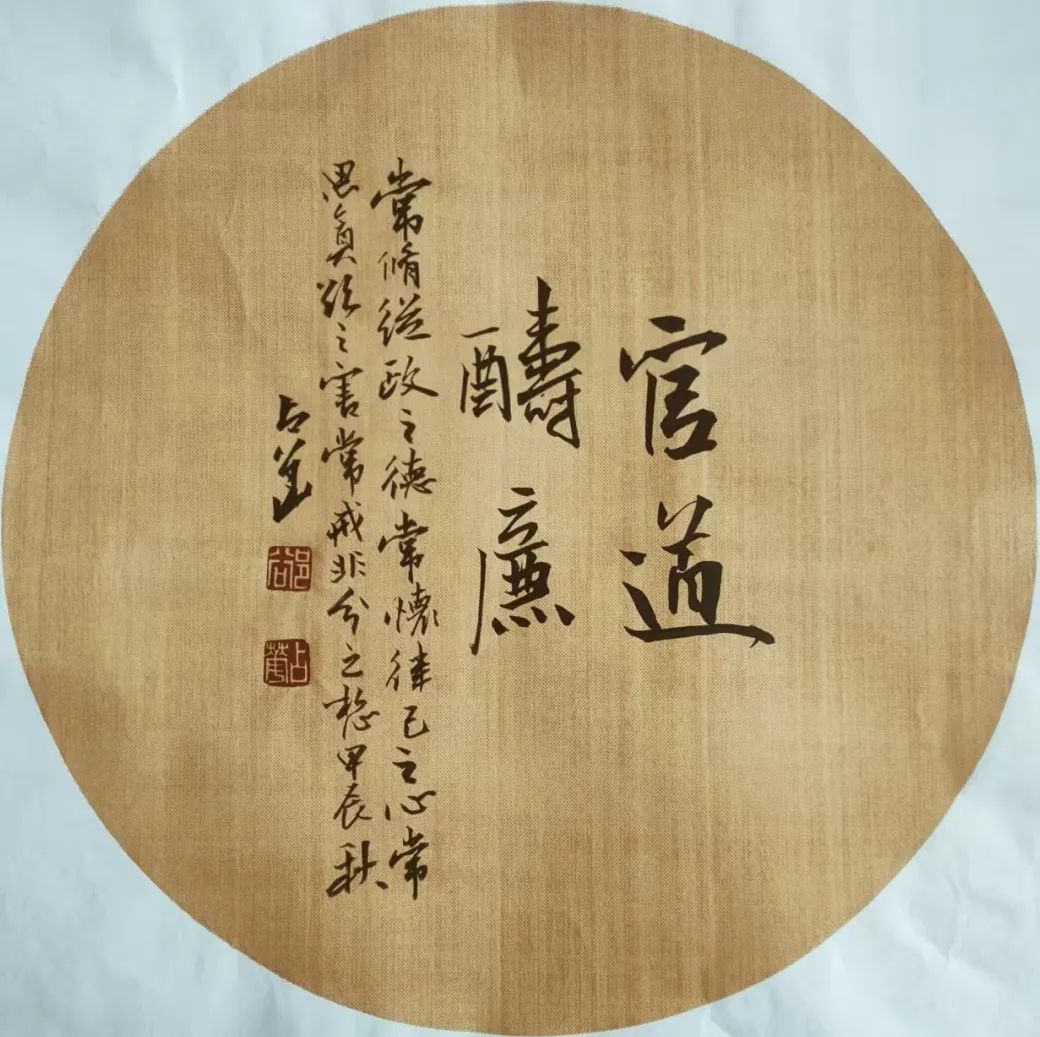 官道
醻廉
常脩從政之德常懷律己之心常
思貪欲之害常戒非分之想甲辰秋
占
占